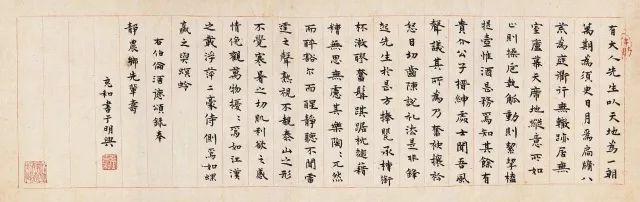 有大人先生以天地為一朝
萬期為須臾日月為扃牖八
荒為庭衢行無轍跡居無
室廬幕天席地縱意所如
止則操卮執觚動則挈榼
提壺惟酒是務焉知其餘有
貴介公子搢紳處士聞吾風
聲議其所為乃奮袂攘衿
怒目切齒陳說禮法是非鋒
起先生於是方捧甖承槽銜
杯漱醪奮髯踑踞枕麴藉
糟無思無慮其樂陶〻兀然
而醉豁尔而醒靜聽不聞雷
霆之聲熟視不覩泰山之形
不覺寒暑之切肌利欲之感
情俛觀萬物擾〻焉如江漢
之載浮萍二豪侍側焉如蜾
蠃之與螟蛉
右伯倫酒德頌錄奉
靜農鄉先輩壽
充和書于明興